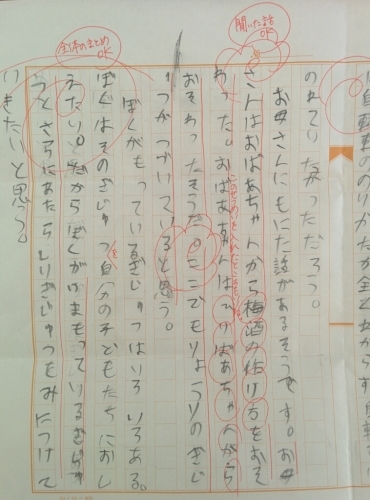 自転車ののりかたが全
のれていなかっただろう。
聞いた話
OK
お母さんにもにた話があるそうです。お母
さんはおばあちゃんから梅酒の作り方をおそ
わった。おばあちゃんはひいばあちゃんから
おそわったそうだ。ここでもりょうりのぎじ
ゅつがつづいていると思う。
ぼくがもっているぎじゅつはいろいろある。
全体のまとめ
OK
ぼくはそのぎじゅつを自分の子どもたちにおし
えたい。だからぼくがいまもっているぎじゅ
つとさらにあたらしいぎじゅつをみにつけて
いきたいと思う。